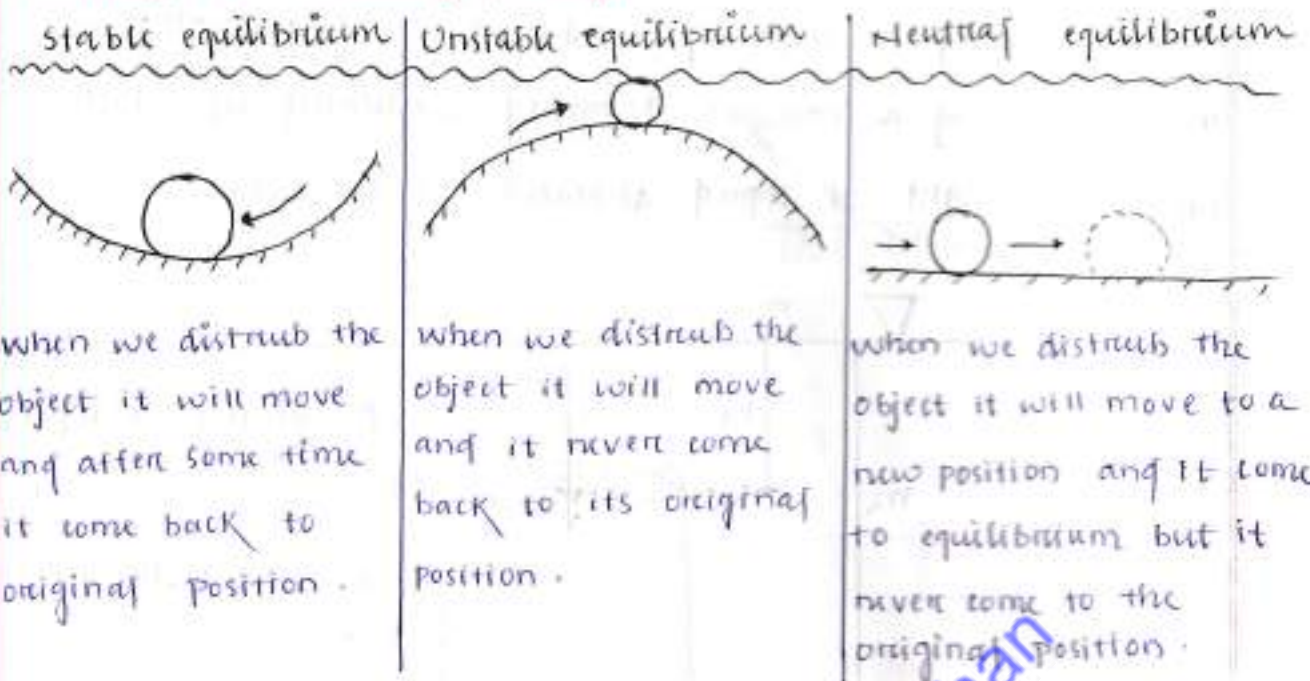 Stable equilibrium
when we distrub the
object it will move
and after some time
it come back to
original position.
Unstable equilibrium
when we distrub the
object it will move
and it never come
back to its original
position.
Neutral equilibrium
when we distrub the
object it will move to a
new position and it come
to equilibrium but it
never come to the
original position.